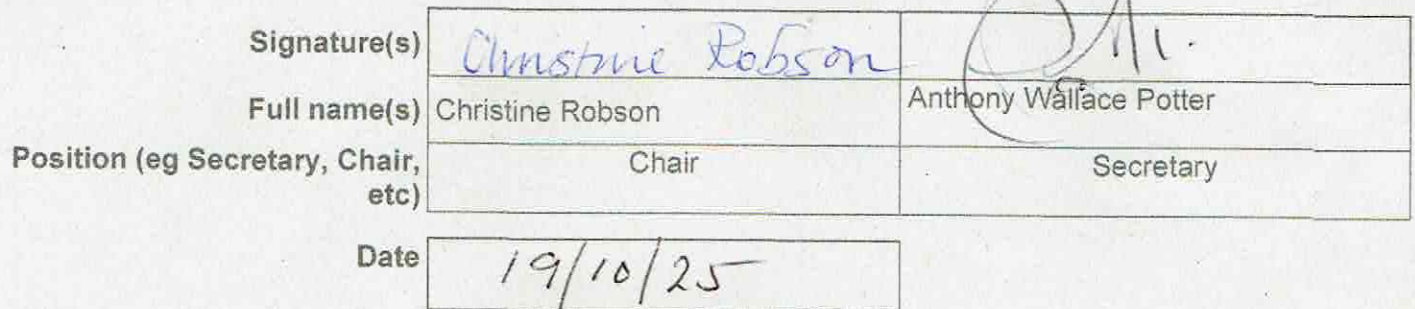 Signature(s) Christine Robson
Full name(s) Christine Robson Anthony Wallace Potter
Position (eg Secretary, Chair, Chair Secretary
etc)
Date 19/10/25